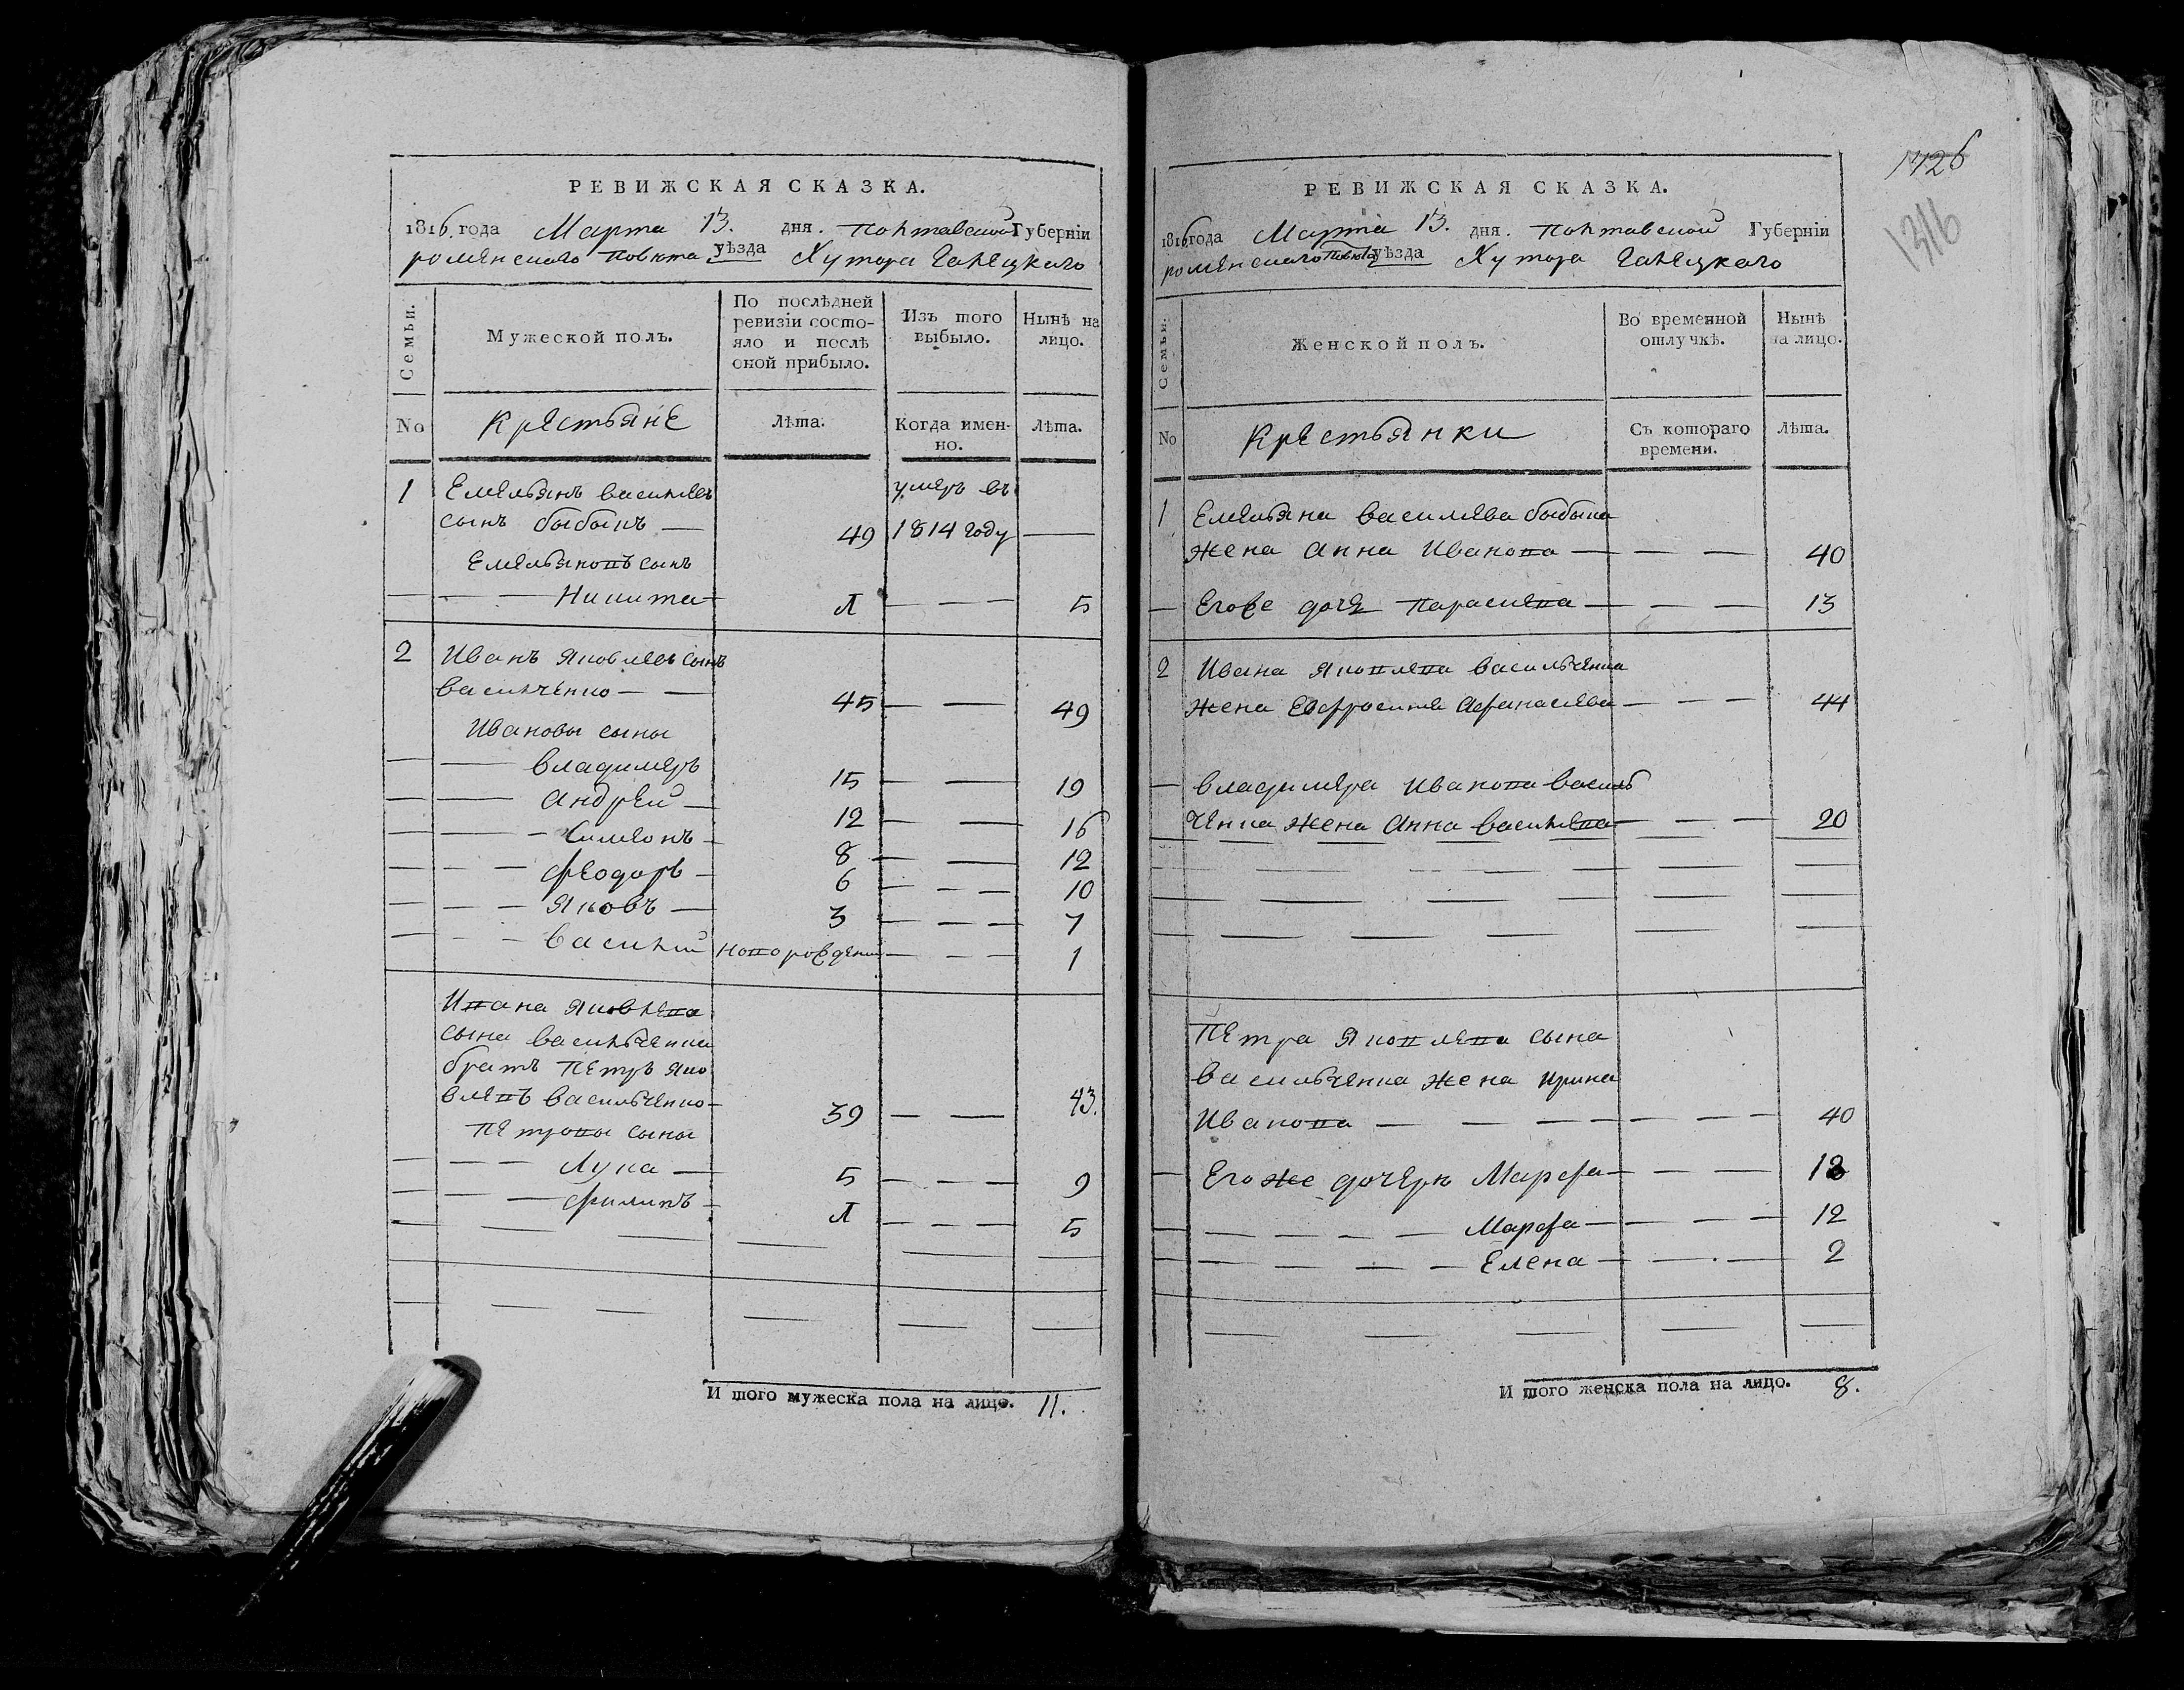 РЕВИЖСКАЯ СКАЗКА.
1816 года Марта 13. дня. Полтавской Губерніи
роменского повѣта уѣзда Хутора Галецкаго
Семьи.
Мужеской полъ.
По послѣдней ревизіи состояло и послѣ оной прибыло.
Изъ того выбыло.
Нынѣ на лицо.
No
Крестьяне
Лѣта.
Когда именно.
Лѣта.
1 Емельянъ василіевъ умеръ въ
сынъ быбыкъ — 49 1814 году —
Емельяновъ сынъ
— — — Никита — 1 — — — 5
2 Иванъ яковлевъ сынъ
василченко — — 45 — — 49
Ивановы сыны
— — владимеръ 15 — — 19
— — андрей — 12 — — 16
— — — Симеонъ — 8 — — 12
— — — феодоръ — 6 — — — 10
— — — яковъ — 3 — — — 7
— — — василий новорожденный — — — 1
Ивана яковлева
сына васильченка
братъ петръ яко
влевъ васильченко — 39 — — 43.
петровы сыны
— — — Лука — 5 — — — 9
— — — филипъ — 1 — — — 5
И того мужеска пола на лицо. 11.
1426
1316
РЕВИЖСКАЯ СКАЗКА.
1816 года Марта 13. дня. Полтавской Губерніи
роменского повѣта уѣзда Хутора Галецкаго
Семьи.
Женской полъ.
Во временной отлучкѣ.
Нынѣ на лицо.
No
Крестьянки
Съ котораго времени.
Лѣта.
1 Емельяна василіева быбыка
жена анна Иванова — — — — 40
— Егоже дочь параскева — — — 13
2 Ивана яковлева васильченка
жена Евфросинія Афанасіева — — — — 44
— владимера Иванова василь
ченка жена анна василіева — — — 20
петра яковлева сына
васильченка жена ирина
Иванова — — — — — — — 40
— Егоже дочери Марфа — — — 18
— — — — — — Марфа — — — — 12
— — — — — Елена — — — — 2
И того женска пола на лицо. 8.